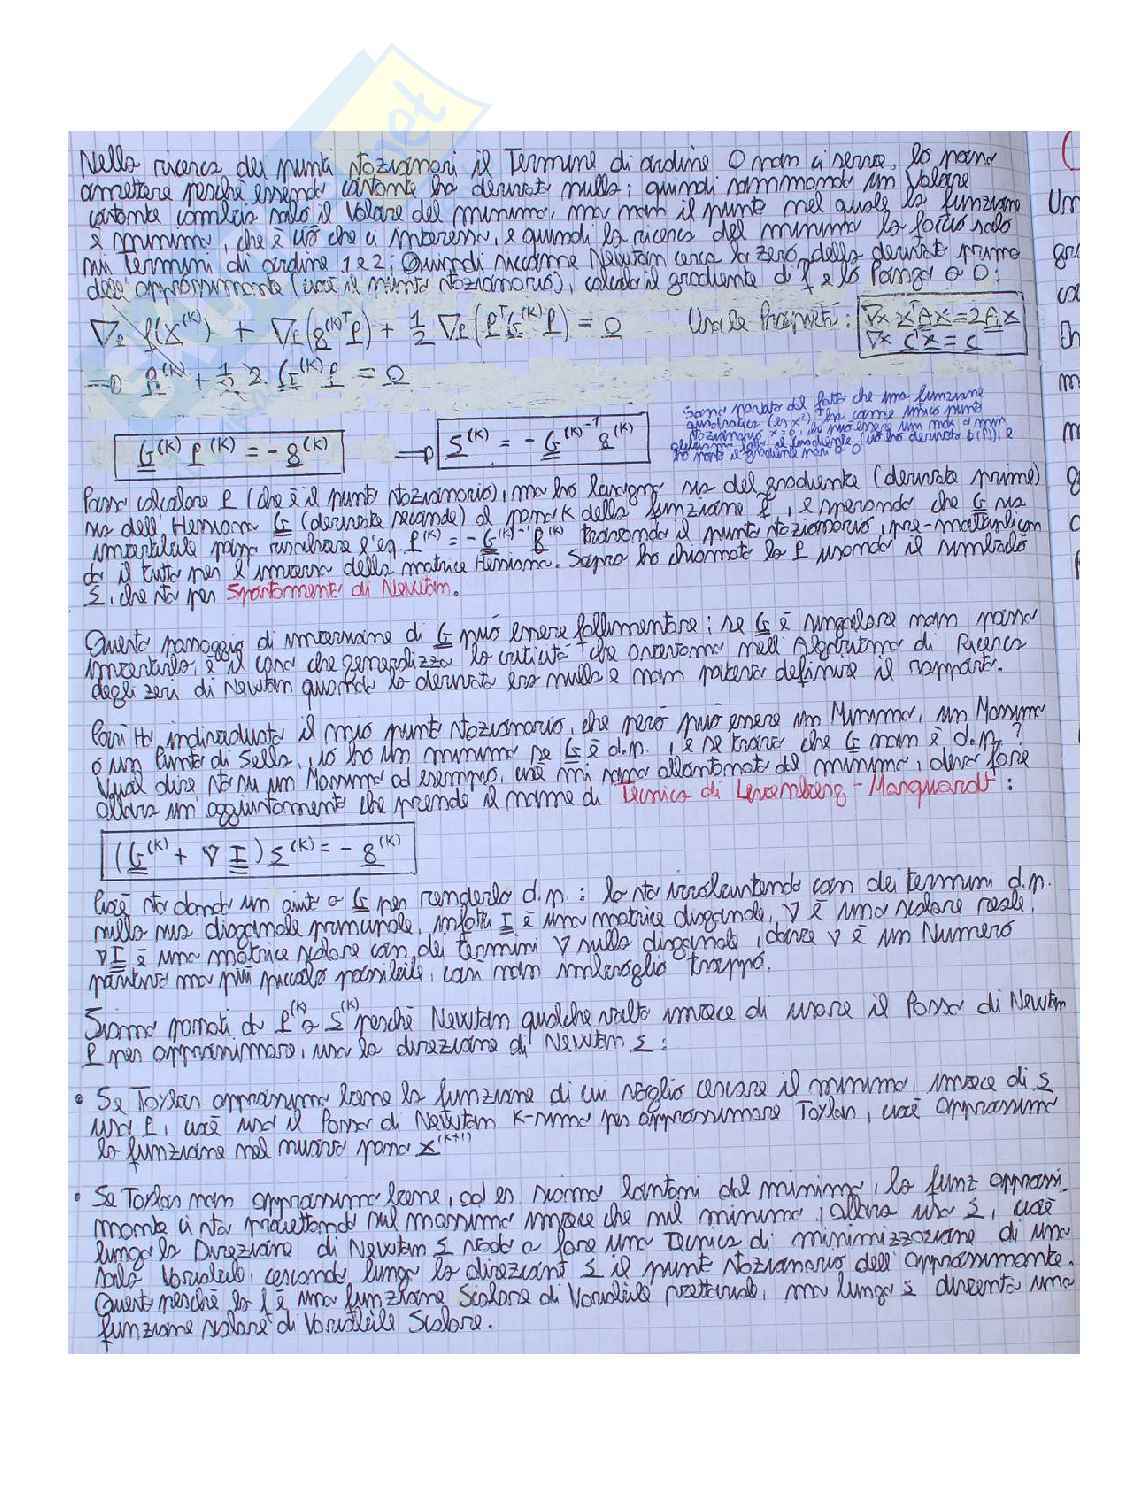 Nella ricerca dei punti stazionari il Termine di ordine 0 non ci serve, lo posso
omettere perché essendo costante ha derivata nulla: quindi sommando un valore
costante cambia solo il valore del minimo, ma non il punto nel quale la funzione
è minima, che è ciò che ci interessa, e quindi la ricerca del minimo la focus solo
sui Termini di ordine 1 e 2. Quindi siccome Newton cerca lo zero della derivata prima
dell'approssimante (cioè il punto stazionario), calcolo il gradiente di f e lo Pongo a 0:
∇p f(x^(K)) + ∇p(g^(K)T p) + 1/2 ∇p(p^T G^(K) p) = 0 Usa le Proprietà: ∇x x^T A x = 2 A x
∇x c^T x = c
=> g^(K) + 1/2 2 G^(K) p = 0
Sono partito dal fatto che una funzione
quadratica (es x²) ha come unico punto
stazionario x=0, che può essere un max o min
G^(K) p^(K) = - g^(K) → s^(K) = - G^(K)-1 g^(K)
Posso calcolare p (che è il punto stazionario), ma ho bisogno sia del gradiente (derivate prime)
sia dell'Hessiana G (derivate seconde) al passo K della funzione f, e sperando che G sia
invertibile posso risolvere l'eq. p^(K) = - G^(K)-1 g^(K) trovando il punto stazionario, pre-moltiplican
do il tutto per l'inversa della matrice Hessiana. Sopra ho chiamato la p usando il simbolo
s, che sta per Spostamento di Newton.
Questo passaggio di inversione di G può essere fallimentare: se G è singolare non posso
invertirla, è il caso che generalizza la criticità che avevamo nell'Algoritmo di Ricerca
degli zeri di Newton quando la derivata era nulla e non poteva definire il rapporto.
Così Ho individuato il mio punto stazionario, che però può essere un Minimo, un Massimo
o un Punto di Sella, io ho un minimo se G è d.p., e se trovo che G non è d.p.?
Vual dire sto su un Massimo ad esempio, cioè mi sono allontanato dal minimo, devo fare
allora un aggiustamento che prende il nome di Tecnica di Levemberg-Marquardt:
(G^(K) + ν I) s^(K) = - g^(K)
Cioè sto dando un aiuto a G per renderla d.p.: la sto irrobustendo con dei termini d.p.
sulla sua diagonale principale, infatti I è una matrice diagonale, ν è uno scalare reale,
ν I è una matrice scalare con dei termini ν sulla diagonale, dove ν è un Numero
positivo ma più piccolo possibile, così non sbilancio troppo.
Siamo passati da p^(K) a s^(K) perché Newton qualche volta invece di usare il Passo di Newton
p per approssimare, usa la direzione di Newton s:
• Se Taylor approssima bene la funzione di cui voglio cercare il minimo invece di s
usa p, cioè usa il Passo di Newton K-simo per approssimare Taylor, cioè approssima
la funzione nel nuovo passo x^(K+1)
• Se Taylor non approssima bene, ad es. siamo lontani dal minimo, la funz approssi
mante ci sta proiettando sul massimo invece che sul minimo, allora usa s, cioè
lungo la Direzione di Newton s vado a fare una tecnica di minimizzazione di una
sola Variabile, cercando lungo la direzione s il punto stazionario dell'approssimante.
Questo perché la f è una funzione Scalare di Variabile vettoriale, ma lungo s diventa una
funzione scalare di Variabile Scalare.